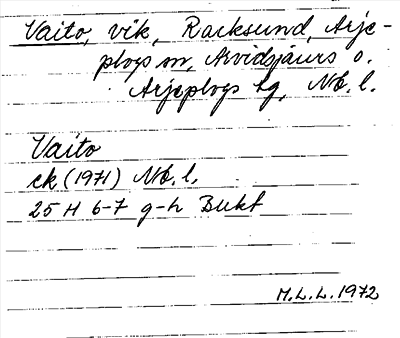 Vaito, vik, Racksund, Arje-
plogs sn, Arvidsjaurs o.
Arjeplogs tg, Nb. l.
Vaito
ek (1971) Nb. l.
25 H 6-7 g-h Bukt
M.L.L. 1972